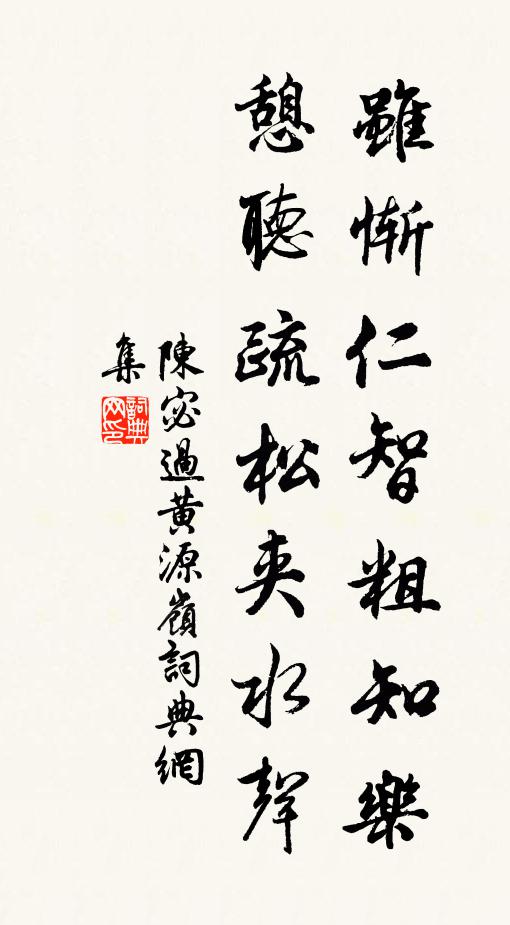 雖慚仁智粗知樂
憩聽疏松夾水聲
陳宓過黃源嶺詞典網
集
詞典
网印